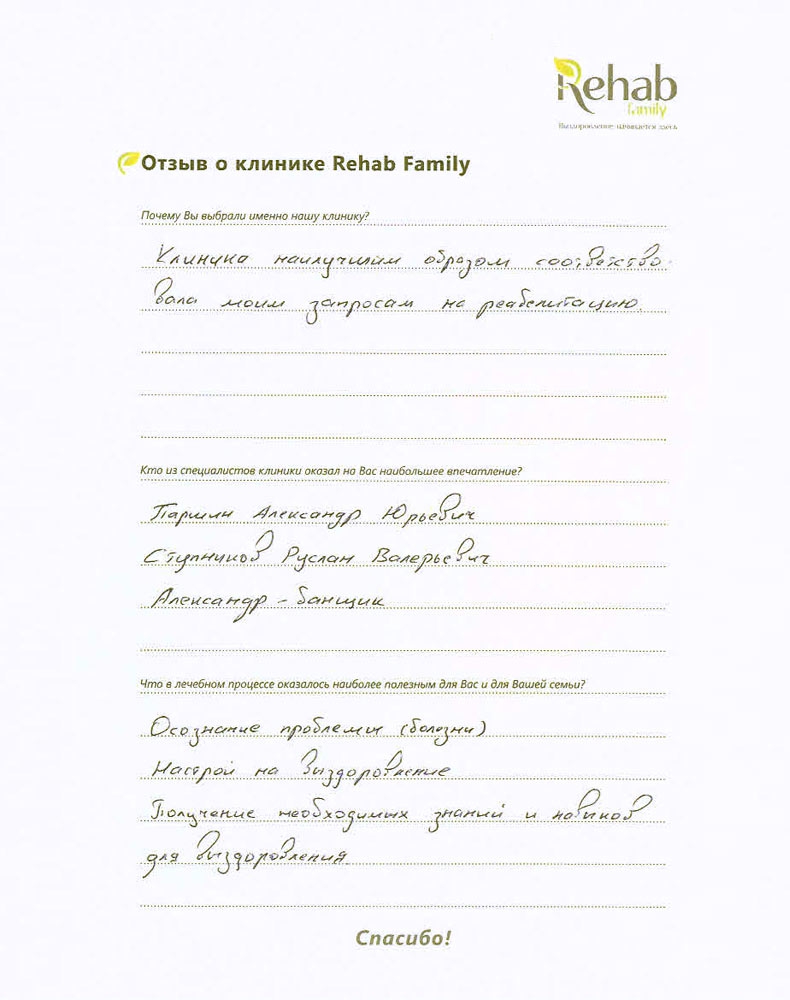 Rehab
family
Выздоровление начинается здесь
Отзыв о клинике Rehab Family
Почему Вы выбрали именно нашу клинику?
Клиника наилучшим образом соответство-
вала моим запросам на реабелитацию.
Кто из специалистов клиники оказал на Вас наибольшее впечатление?
Паршин Александр Юрьевич
Ступников Руслан Валерьевич
Александр - банщик
Что в лечебном процессе оказалось наиболее полезным для Вас и для Вашей семьи?
Осознание проблемы (болезни)
Настрой на выздоровление
Получение необходимых знаний и навыков
для выздоровления
Спасибо!